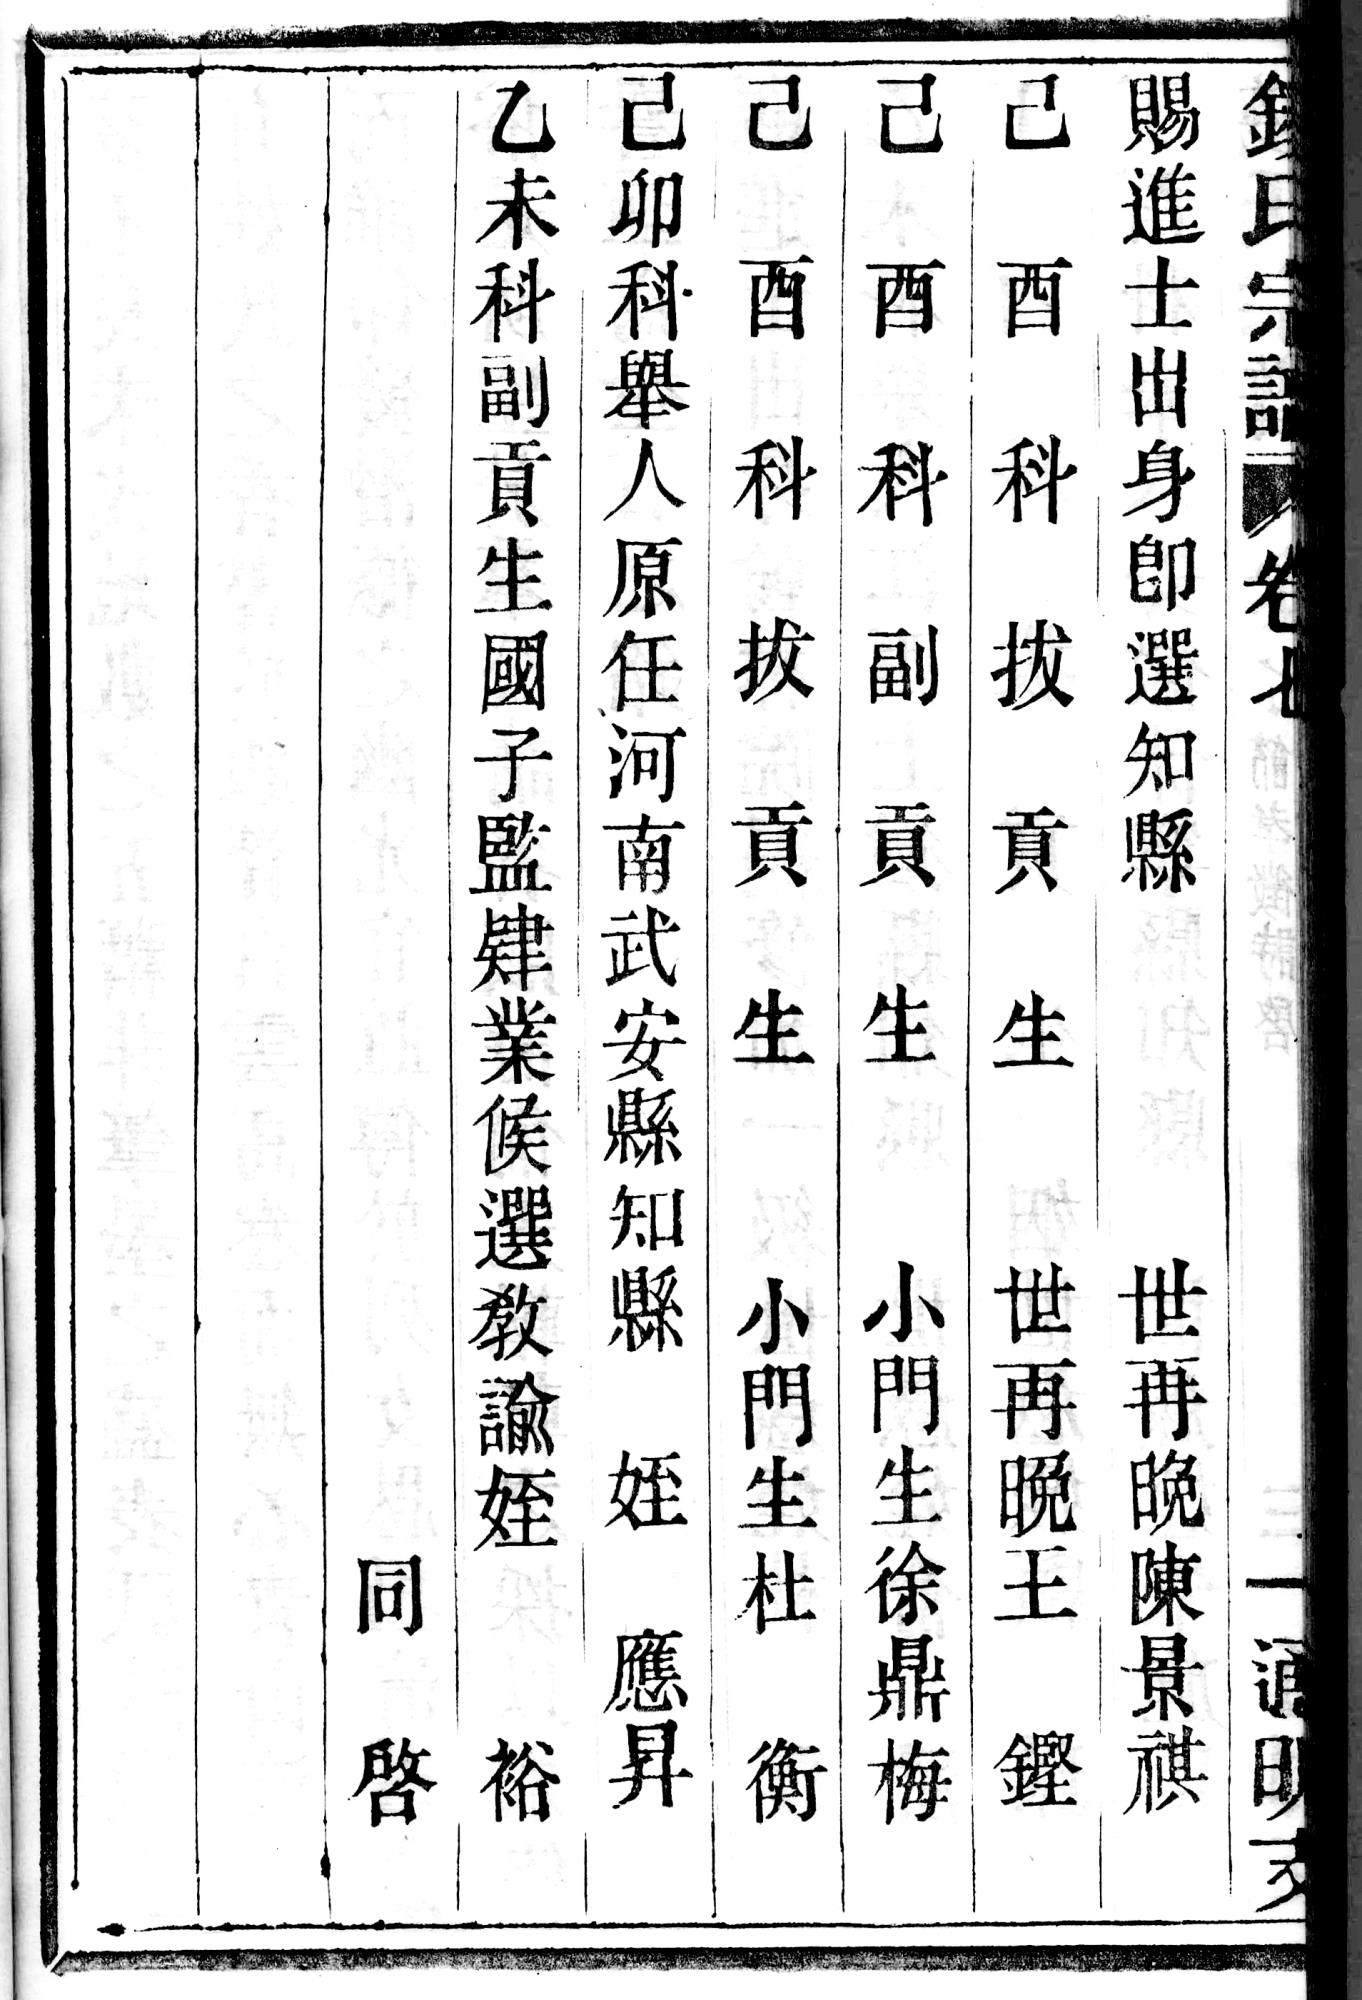 氏宗譜 卷七
賜進士出身卽選知縣 世再晚陳景祺
己酉科拔貢生 世再晚王鏗
己酉科副貢生 小門生徐鼎梅
己酉科拔貢生 小門生杜衡
己卯科舉人原任河南武安縣知縣 姪應昇
乙未科副貢生國子監肄業候選教諭姪裕
同啓